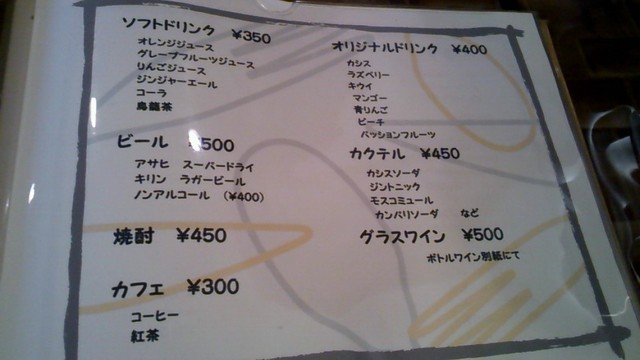 ソフトドリンク ¥350
オレンジジュース
グレープフルーツジュース
りんごジュース
ジンジャーエール
コーラ
烏龍茶
ビール ¥500
アサヒ スーパードライ
キリン ラガービール
ノンアルコール (¥400)
焼酎 ¥450
カフェ ¥300
コーヒー
紅茶
オリジナルドリンク ¥400
カシス
ラズベリー
キウイ
マンゴー
青りんご
ピーチ
パッションフルーツ
カクテル ¥450
カシスソーダ
ジントニック
モスコミュール
カンパリソーダ など
グラスワイン ¥500
ボトルワイン別紙にて